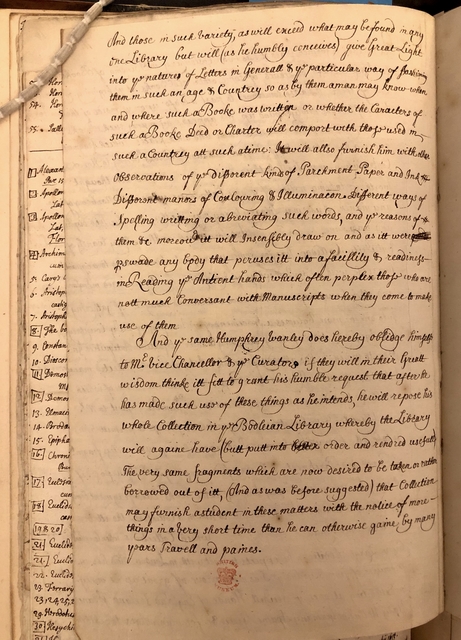 And those in such variety, as will exceed what may be found in any
one Library but will (as he humbly conceives) give Great Light
into ye natures of Letters in Generall & ye particular way of fashing
them in such an age & Countrey so as by them a man may know when
and where such a Booke was written or whether the Caracters of
such a Booke Deed or Charter will comport with those used in
such a Countrey att such a time: It will allso furnish him with other
observations of ye Different kinds of Parchment Paper and Ink &
Different manors of Coulouring & Illuminacon Different ways of
Spelling writting or abreviating such words, and ye reasons of
them & moreover itt will Insensibly draw on and as itt were
perwade any body that peruses itt into a facillity & readiness
in Reading ye Antient hands which often perplex those who are
nott much Conversant with Manuscripts when they come to make
use of them
And ye same Humphrey Wanley does hereby obledge himself
to Mr Vice Chancellor & ye Curators if they will in their Great
wisdom thinke itt fitt to grant his humble request that after he
has made such use of these things as he intends, he will repose his
whole Collection in ye Bodleian Library whereby the Library
will againe have (butt putt into better order and rendred usefull)
The very same fragments which are now desired to be taken or rather
borrowed out of itt, (And as was before suggested) that Collection
may furnish a student in these matters with the notice of more
things in a very short time than he can otherwise gaine by many
years Travell and paines.